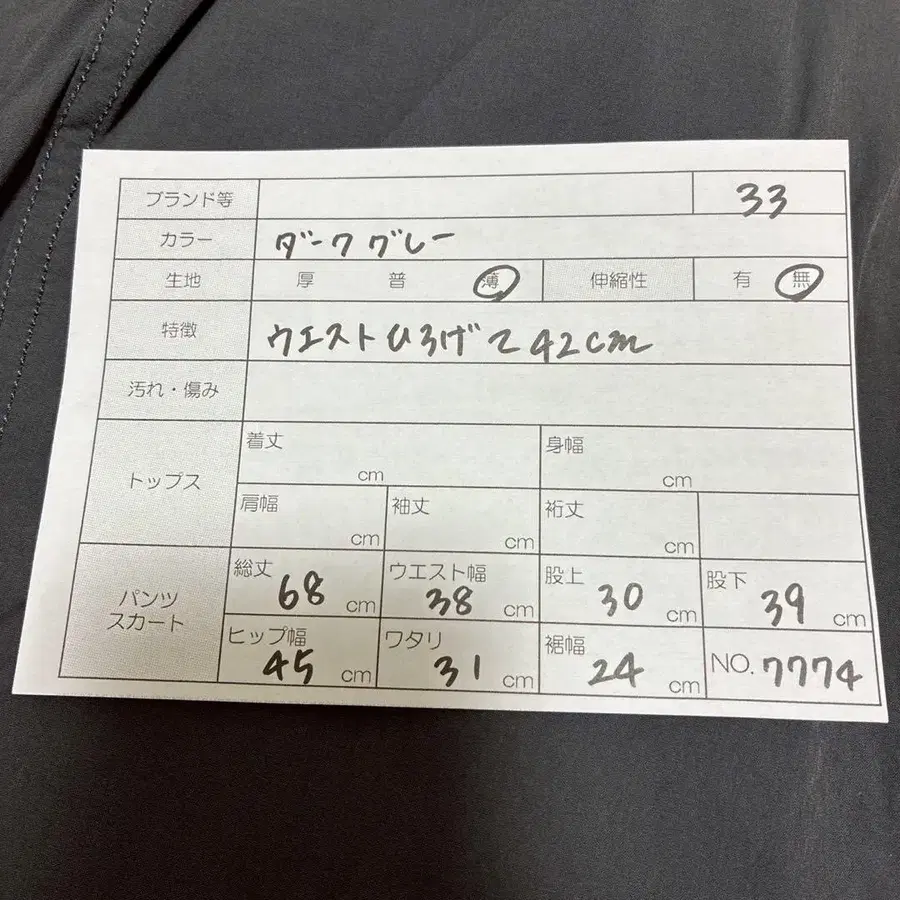 ブランド等 33
カラー ダークグレー
生地 厚 普 薄 伸縮性 有 無
特徴 ウエストひろげて42cm
汚れ・傷み
トップス
着丈 cm 身幅 cm
肩幅 cm 袖丈 cm 裄丈 cm
パンツ
スカート
総丈 68 cm ウエスト幅 38 cm 股上 30 cm 股下 39 cm
ヒップ幅 45 cm ワタリ 31 cm 裾幅 24 cm NO. 7774